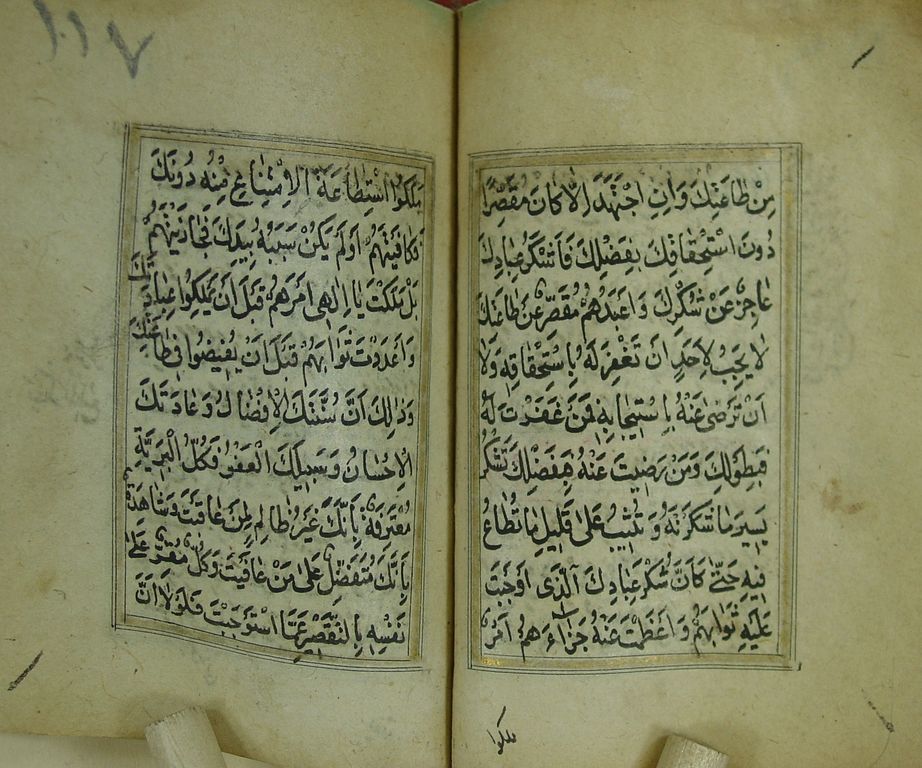 مِنْ طَاعَتِكَ وَاِنِ اجْتَهَدَ اِلَّا كَانَ مُقَصِّرًا
دُونَ اسْتِحْقَاقِكَ بِفَضْلِكَ فَاَشْكَرُ عِبَادِكَ
عَاجِزٌ عَنْ شُكْرِكَ وَاَعْبَدُهُمْ مُقَصِّرٌ عَنْ طَاعَتِكَ
لَا يَجِبُ لِاَحَدٍ اَنْ تَغْفِرَ لَهُ بِاسْتِحْقَاقِهِ وَلَا
اَنْ تَرْضٰى عَنْهُ بِاسْتِيجَابِهِ فَمَنْ غَفَرْتَ لَهُ
فَبِطَوْلِكَ وَمَنْ رَضِيتَ عَنْهُ فَبِفَضْلِكَ تَشْكُرُ
يَسِيرَ مَا شَكَرْتَهُ وَتُثِيبُ عَلٰى قَلِيلِ مَا تُطَاعُ
فِيهِ حَتّٰى كَاَنَّ شُكْرَ عِبَادِكَ الَّذِى اَوْجَبْتَ
عَلَيْهِ ثَوَابَهُمْ وَاَعْظَمْتَ عَنْهُ جَزَآءَهُمْ اَمْرٌ
ملكوا
مَلَكُوا اسْتِطَاعَةَ الْاِمْتِنَاعِ مِنْهُ دُونَكَ
فَكَافَيْتَهُمْ اَوْ لَمْ يَكُنْ سَبَبُهُ بِيَدِكَ فَجَازَيْتَهُمْ
بَلْ مَلَكْتَ يَا اِلٰهِى اَمْرَهُمْ قَبْلَ اَنْ يَمْلِكُوا عِبَادَتَكَ
وَاَعْدَدْتَ ثَوَابَهُمْ قَبْلَ اَنْ يُفِيضُوا فِى طَاعَتِكَ
وَذٰلِكَ اَنَّ سُنَّتَكَ الْاِفْضَالُ وَعَادَتَكَ
الْاِحْسَانُ وَسَبِيلَكَ الْعَفْوُ فَكُلُّ الْبَرِيَّةِ
مُعْتَرِفَةٌ بِاَنَّكَ غَيْرُ ظَالِمٍ لِمَنْ عَاقَبْتَ وَشَاهِدَةٌ
بِاَنَّكَ مُتَفَضِّلٌ عَلٰى مَنْ عَافَيْتَ وَكُلٌّ مُقِرٌّ عَلٰى
نَفْسِهِ بِالتَّقْصِيرِ عَمَّا اسْتَوْجَبْتَ فَلَوْلَا اَنَّ